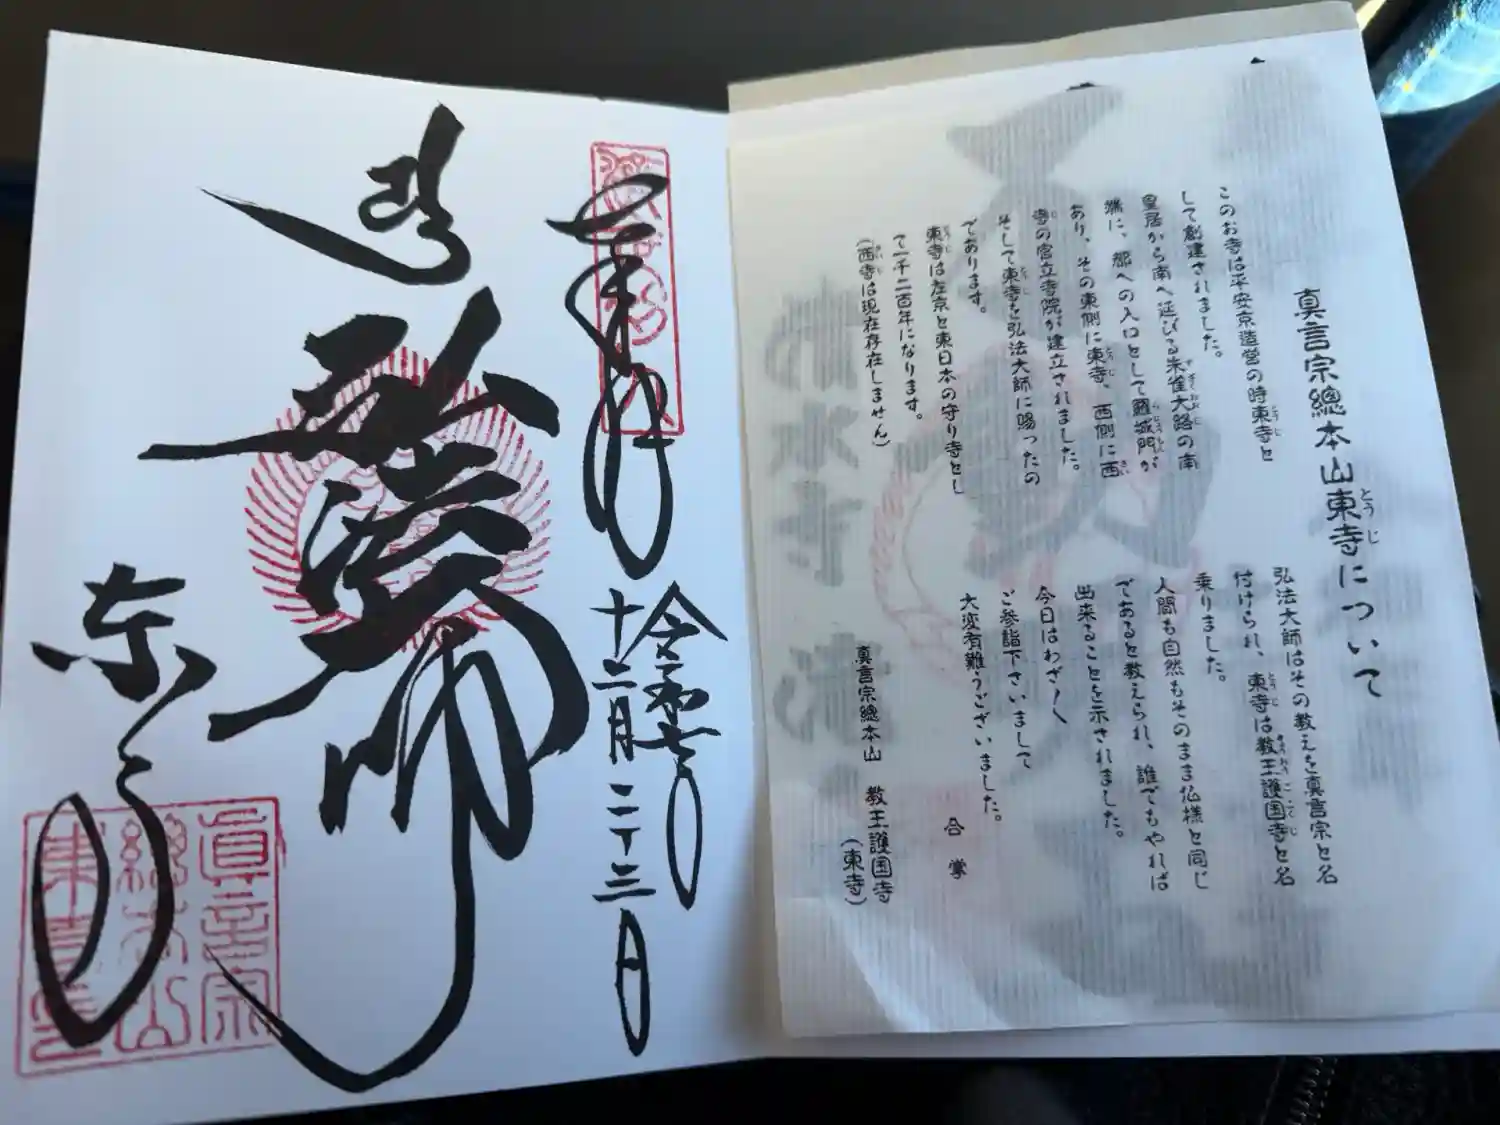 真言宗總本山東寺について
このお寺は平安京造営の時東寺と
して創建されました。
皇居から南へ延びる朱雀大路の南
端に、都への入口として羅城門が
あり、その東側に東寺、西側に西
寺の官立寺院が建立されました。
そして東寺を弘法大師に賜ったの
であります。
東寺は左京と東日本の守り寺とし
て一千二百年になります。
(西寺は現在存在しません)
弘法大師はその教えを真言宗と名
付けられ、東寺は教王護国寺と名
乗りました。
人間も自然もそのまま仏様と同じ
であると教えられ、誰でもやれば
出来ることを示されました。
今日はわざ〱
ご参詣下さいまして
大変有難うございました。
合掌
真言宗總本山 教王護国寺
(東寺)
奉拝
令和七年
十二月二十三日
弘法大師
東寺
眞言宗
總本山
東寺